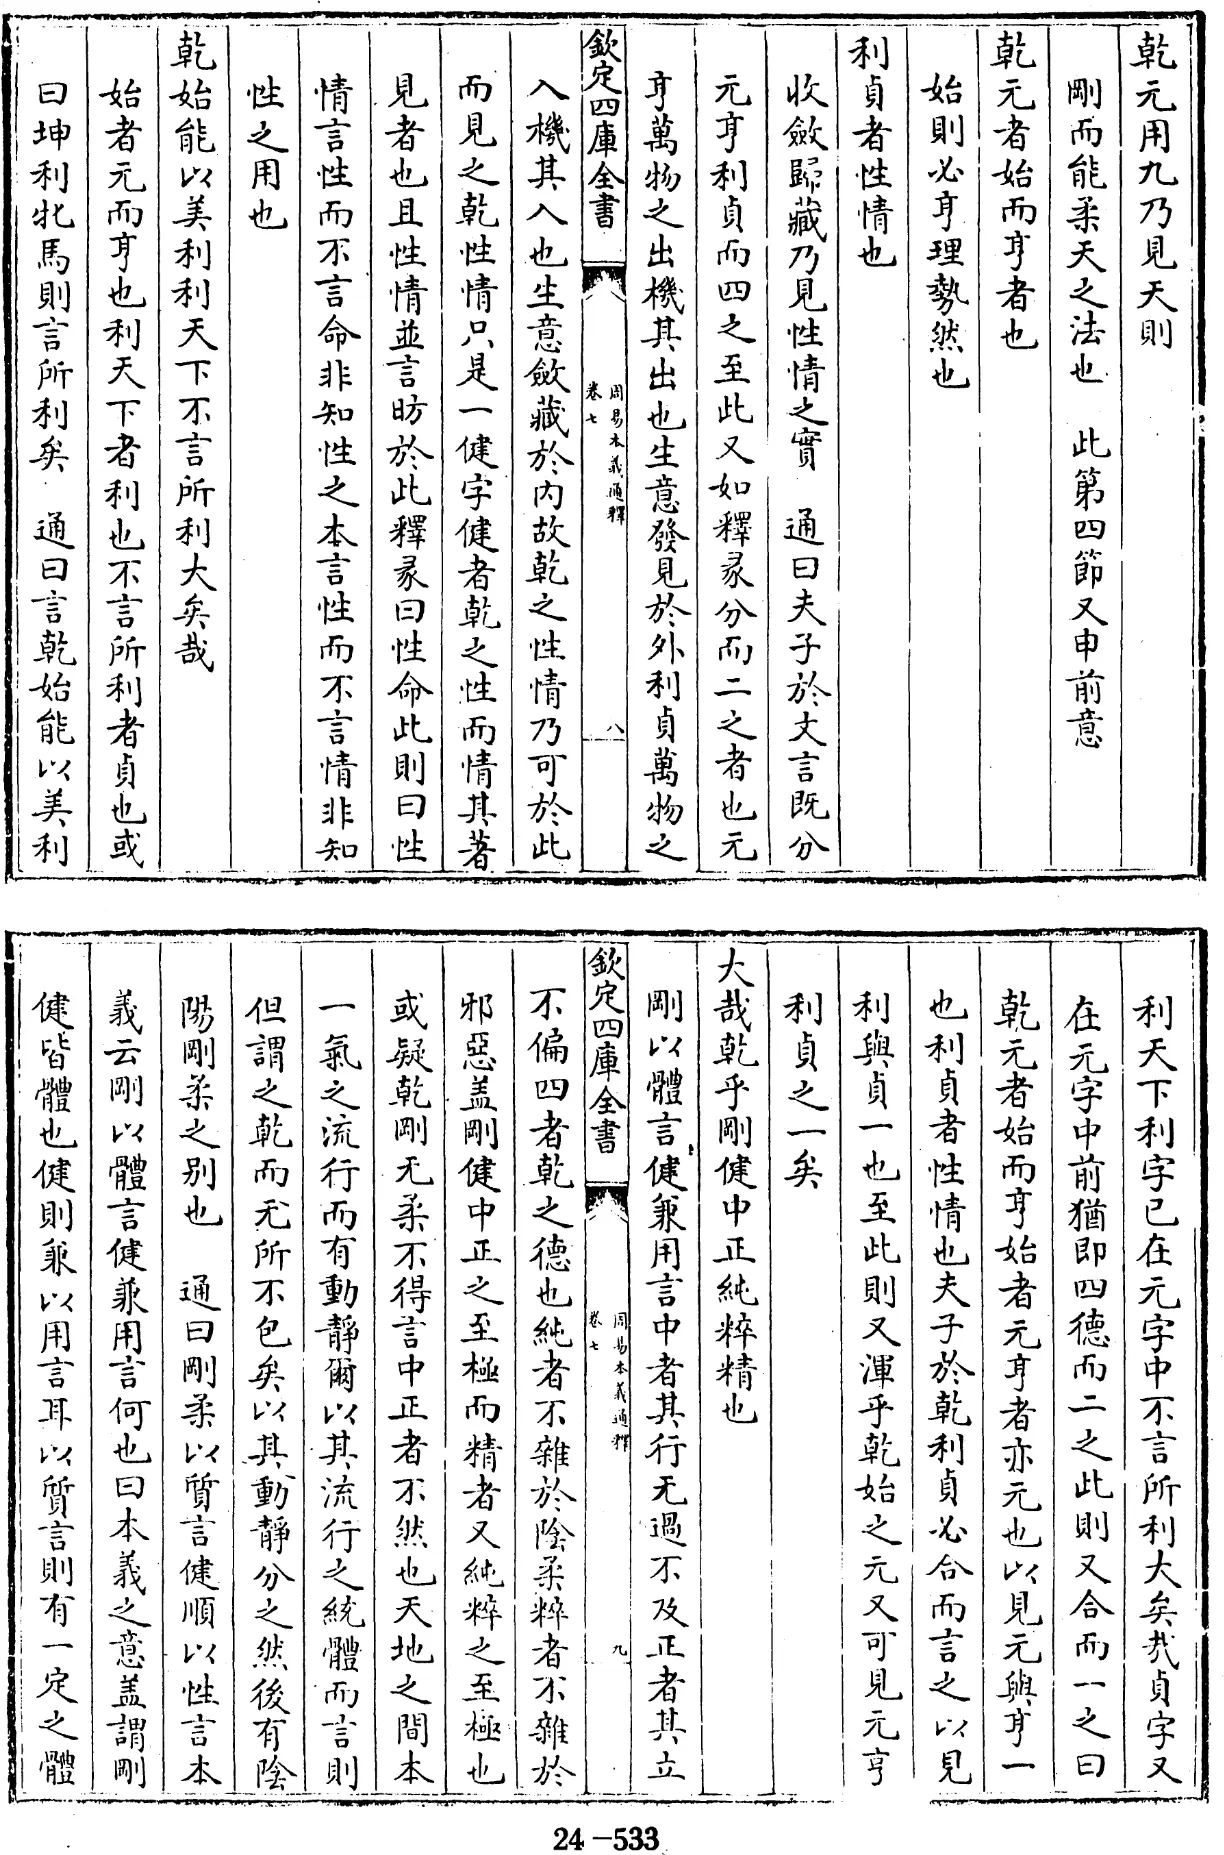 乾元用九乃見天則
剛而能柔天之法也　此第四節又申前意
乾元者始而亨者也
始則必亨理勢然也
利貞者性情也
收斂歸藏乃見性情之實　通曰夫子於文言既分
元亨利貞而四之至此又如釋彖分而二之者也元
亨萬物之出機其出也生意發見於外利貞萬物之
欽定四庫全書
周易本義通釋
卷七
八
入機其入也生意斂藏於内故乾之性情乃可於此
而見之乾性情只是一健字健者乾之性而情其著
見者也且性情並言昉於此釋彖曰性命此則曰性
情言性而不言命非知性之本言性而不言情非知
性之用也
乾始能以美利利天下不言所利大矣哉
始者元而亨也利天下者利也不言所利者貞也或
曰坤利牝馬則言所利矣　通曰言乾始能以美利
利天下利字已在元字中不言所利大矣哉貞字又
在元字中前猶即四德而二之此則又合而一之曰
乾元者始而亨始者元亨者亦元也以見元與亨一
也利貞者性情也夫子於乾利貞必合而言之以見
利與貞一也至此則又渾乎乾始之元又可見元亨
利貞之一矣
大哉乾乎剛健中正純粹精也
剛以體言健兼用言中者其行无過不及正者其立
欽定四庫全書
周易本義通釋
卷七
九
不偏四者乾之德也純者不雜於陰柔粹者不雜於
邪惡盖剛健中正之至極而精者又純粹之至極也
或疑乾剛无柔不得言中正者不然也天地之間本
一氣之流行而有動靜爾以其流行之統體而言則
但謂之乾而无所不包矣以其動靜分之然後有陰
陽剛柔之别也　通曰剛柔以質言健順以性言本
義云剛以體言健兼用言何也曰本義之意盖謂剛
健皆體也健則兼以用言耳以質言則有一定之體
24-533